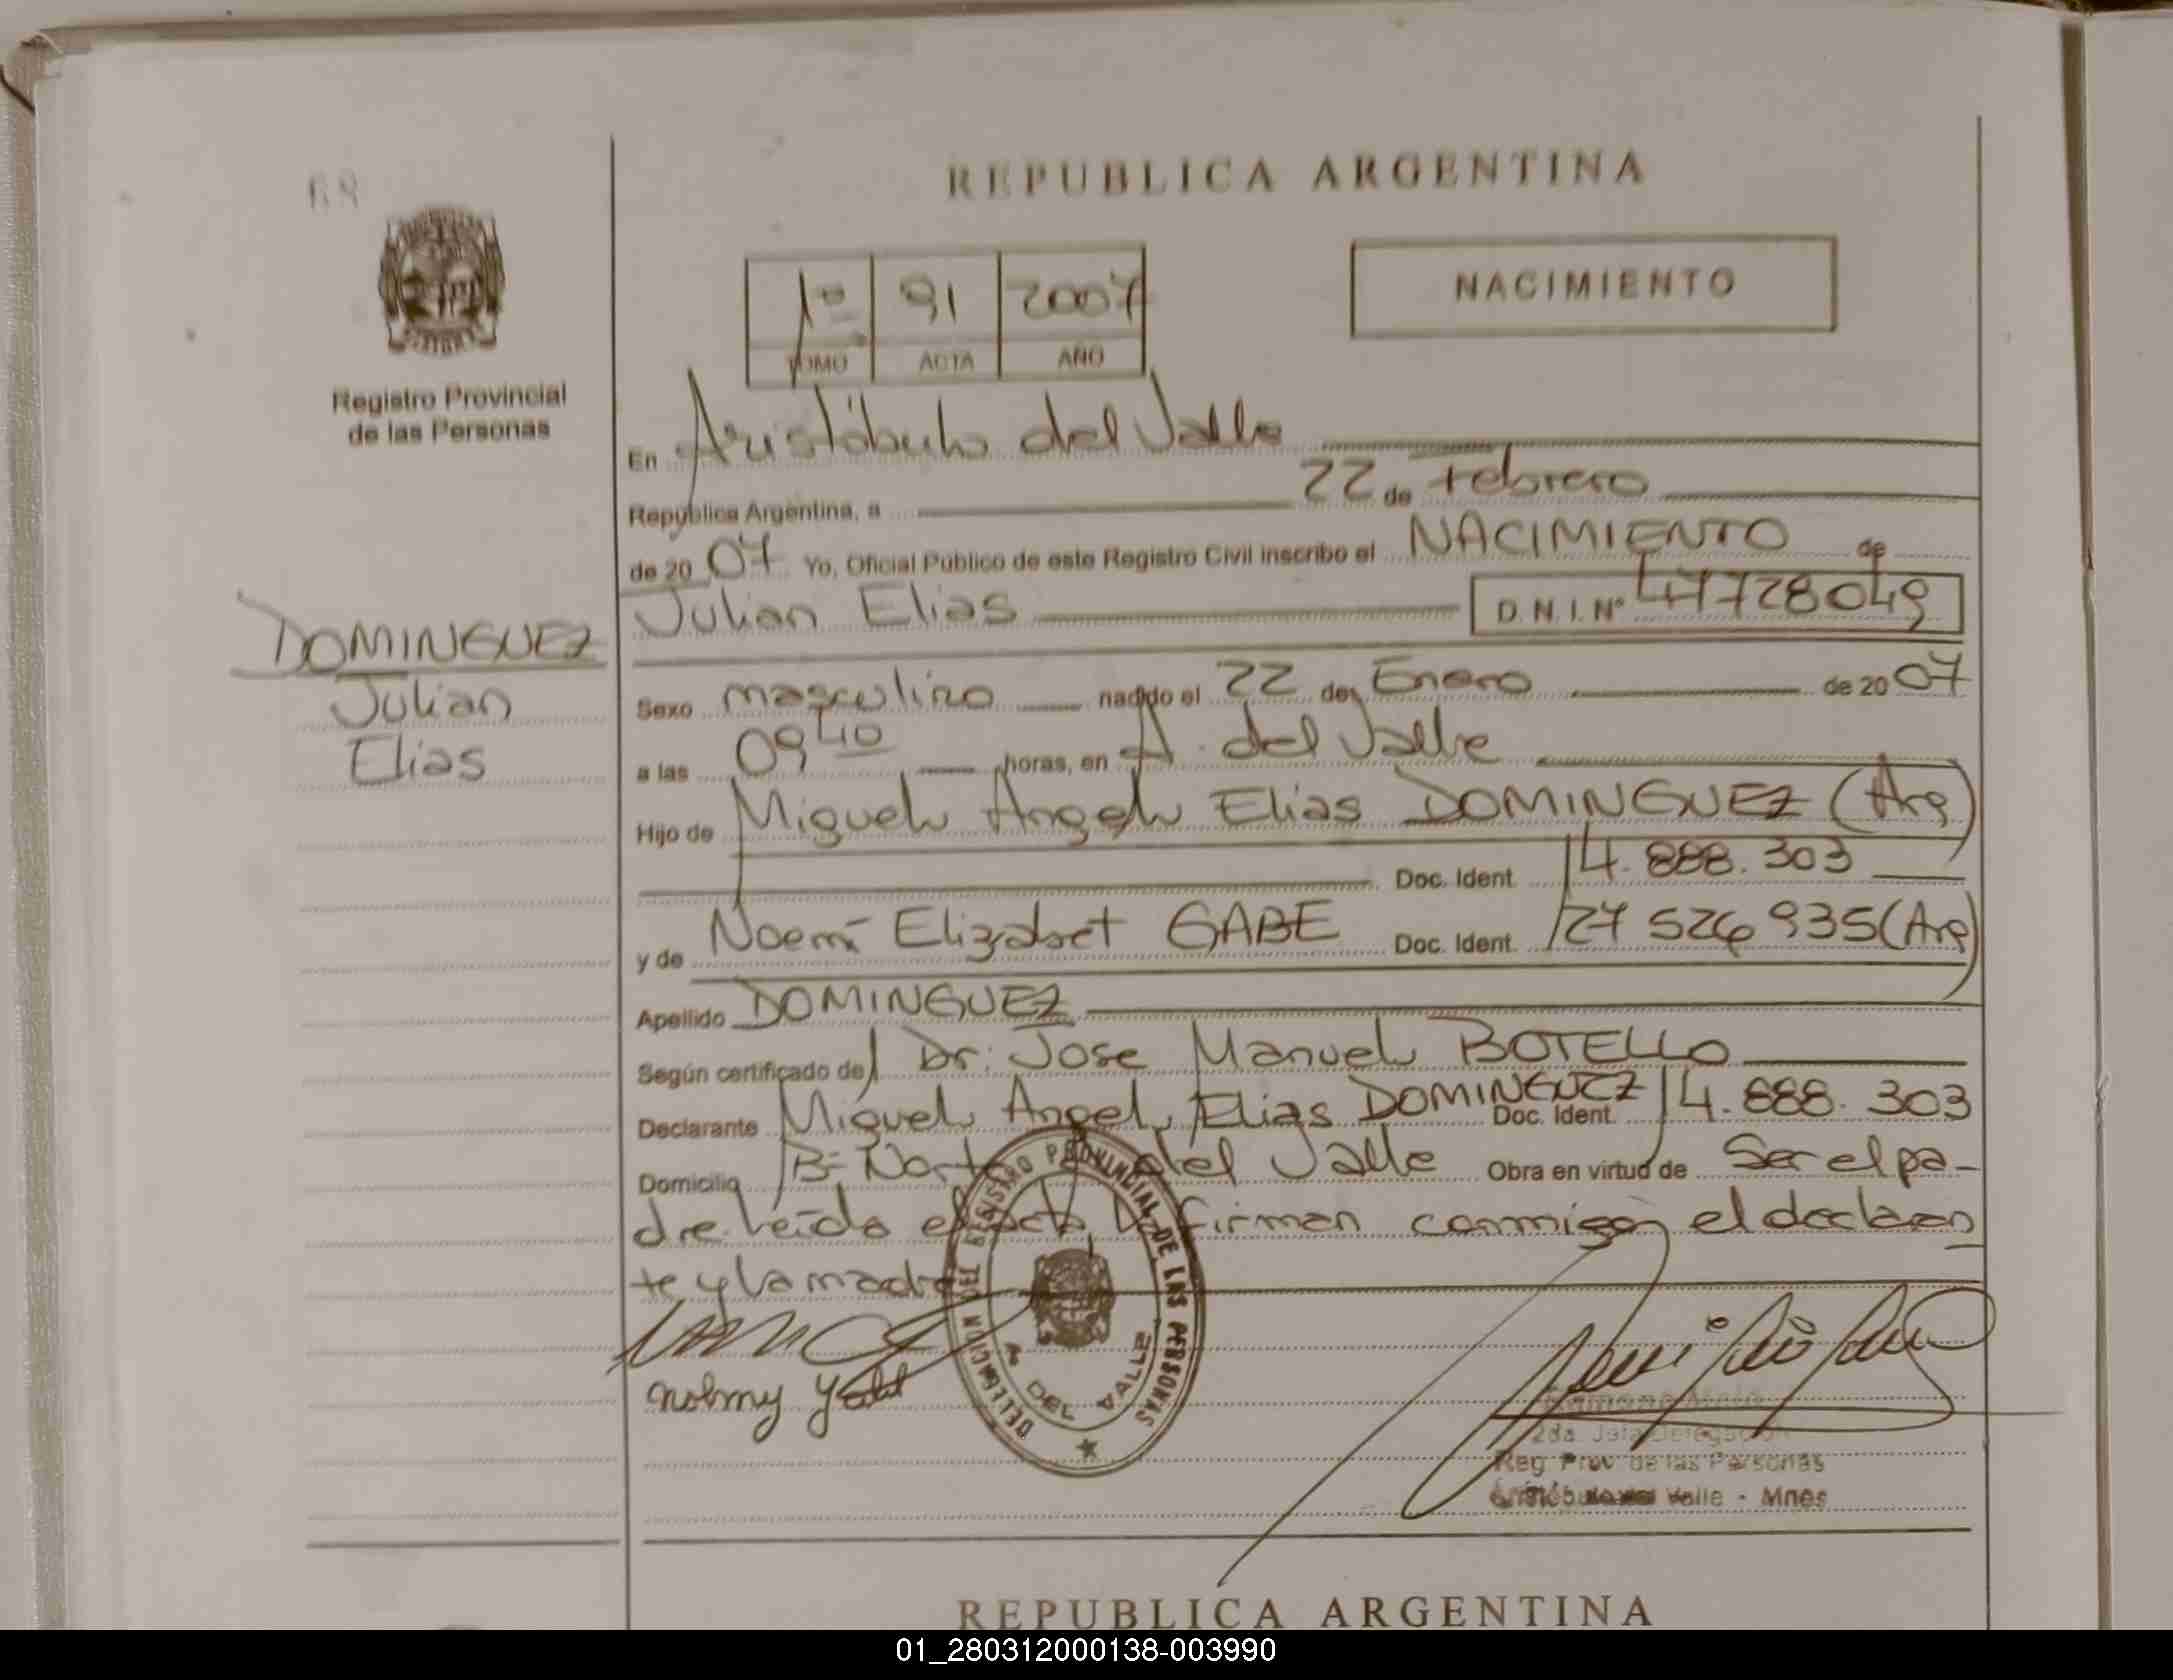 REPUBLICA ARGENTINA
68
NACIMIENTO
1º 91 2007
TOMO ACTA AÑO
Registro Provincial
de las Personas
En Aristóbulo del Valle
República Argentina, a 22 de Febrero
de 20 07 Yo, Oficial Público de este Registro Civil inscribo el NACIMIENTO de
Julian Elias D.N.I. Nº 47728049
DOMINGUEZ
Julian
Elias
Sexo masculino nacido el 22 de Enero de 20 07
a las 09 40 horas, en A. del Valle
Hijo de Miguel Angel Elias DOMINGUEZ (Arg)
Doc. Ident. 14.888.303
y de Noemí Elizabet GABE Doc. Ident. 27 526 935 (Arg)
Apellido DOMINGUEZ
Según certificado de Dr: Jose Manuel BOTELLO
Declarante Miguel Angel Elias DOMINGUEZ Doc. Ident. 14.888.303
Domicilio Bº Norte del Valle Obra en virtud de Ser el pa-
dre. Leída el acta firman conmigo, el declaran
te y la madre
DELEGACION DEL REGISTRO PROVINCIAL DE LAS PERSONAS
A. DEL VALLE
2da. Jefa Delegación
Reg. Prov. de las Personas
Aristóbulo del Valle - Mnes
REPUBLICA ARGENTINA
01_280312000138-003990